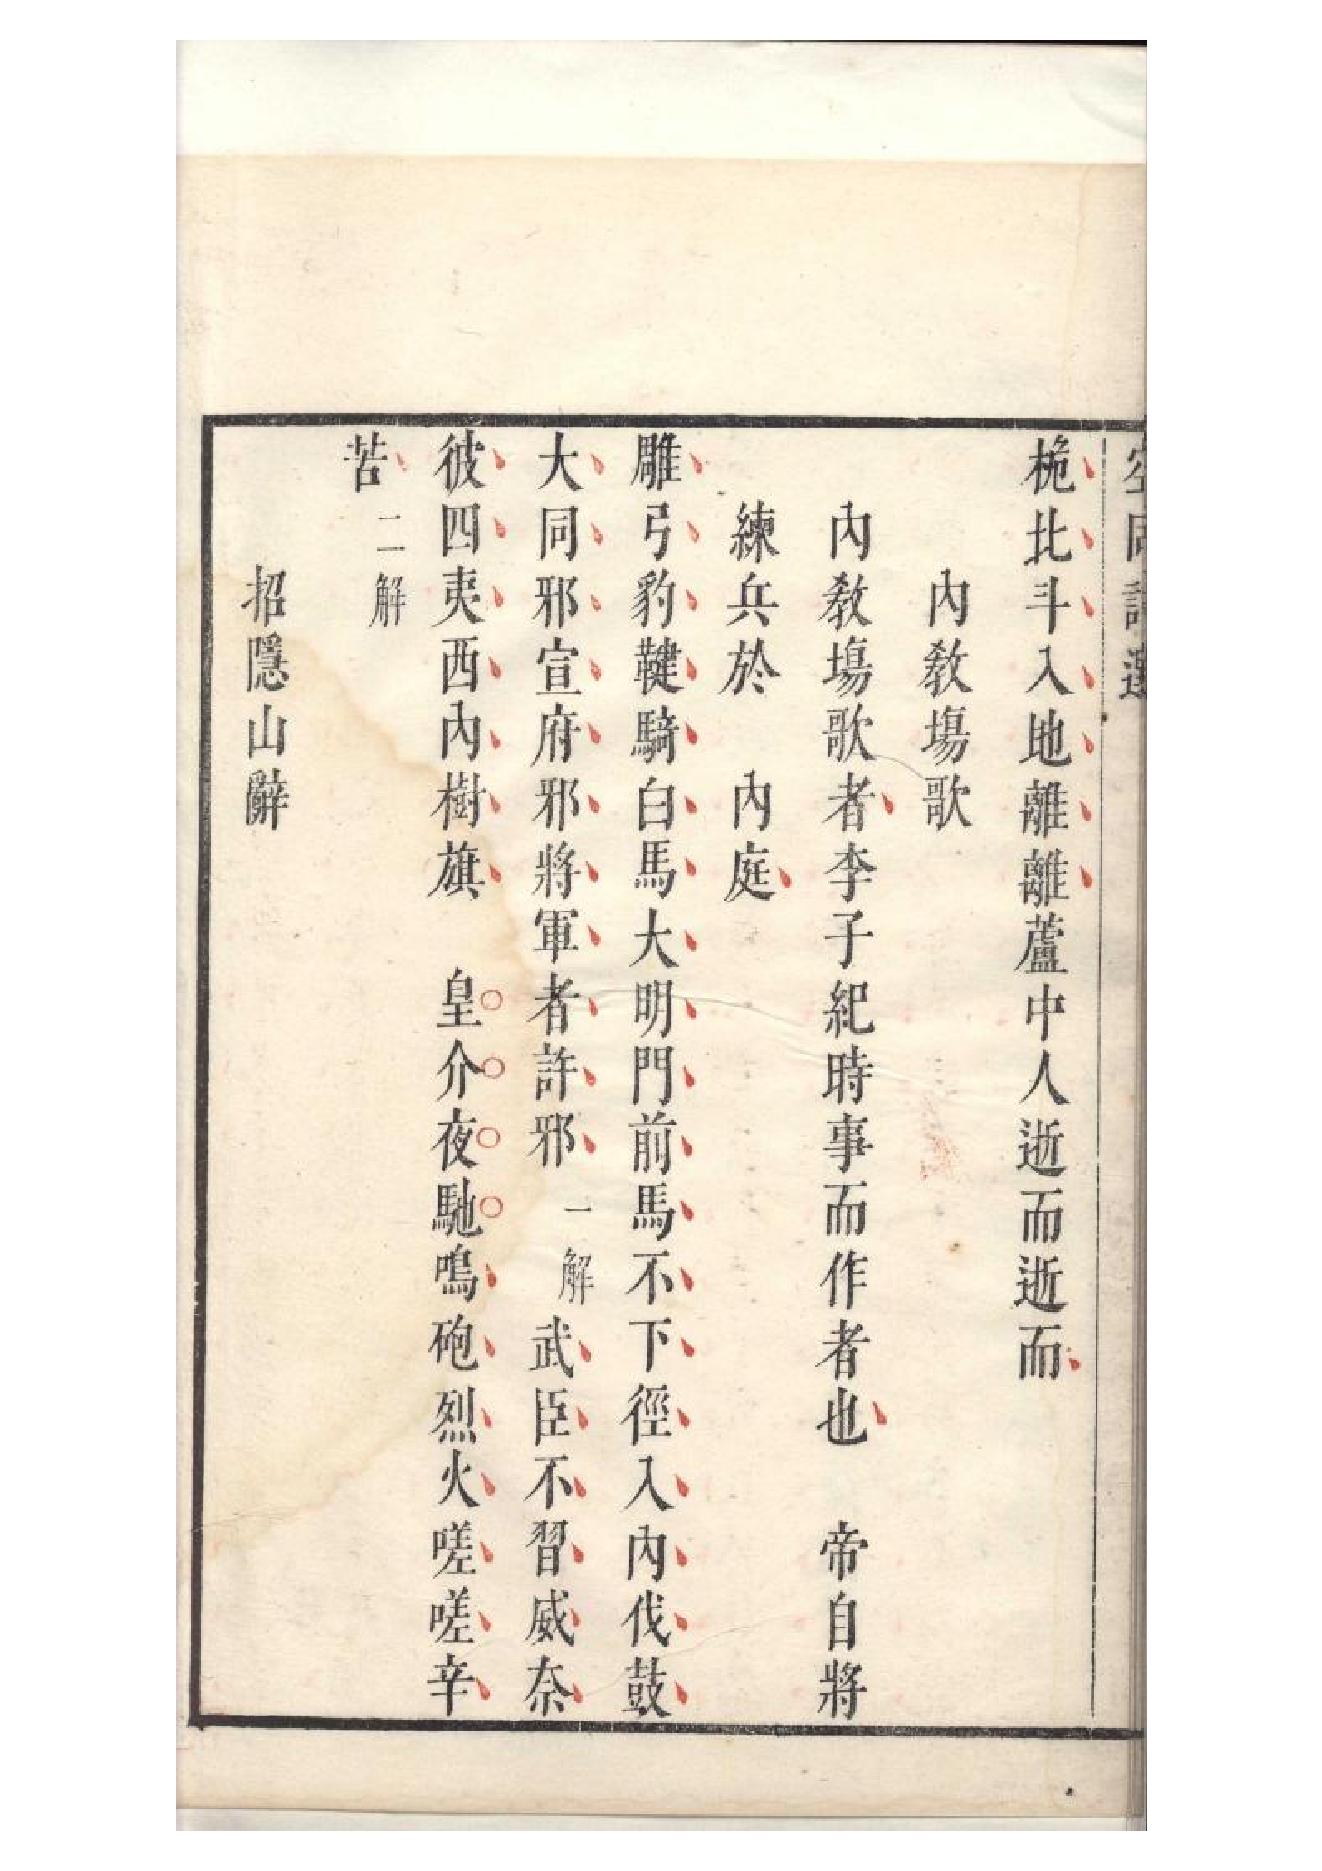 桅北斗入地離離蘆中人逝而逝而
內敎塲歌
內敎塲歌者李子紀時事而作者也 帝自將
練兵於 內庭
雕弓豹鞬騎白馬大明門前馬不下徑入內伐鼓
大同邪宣府邪將軍者許邪 一解 武臣不習威奈
彼四夷西內樹旗 皇介夜馳鳴砲烈火嗟嗟辛
苦 二解
招隱山辭